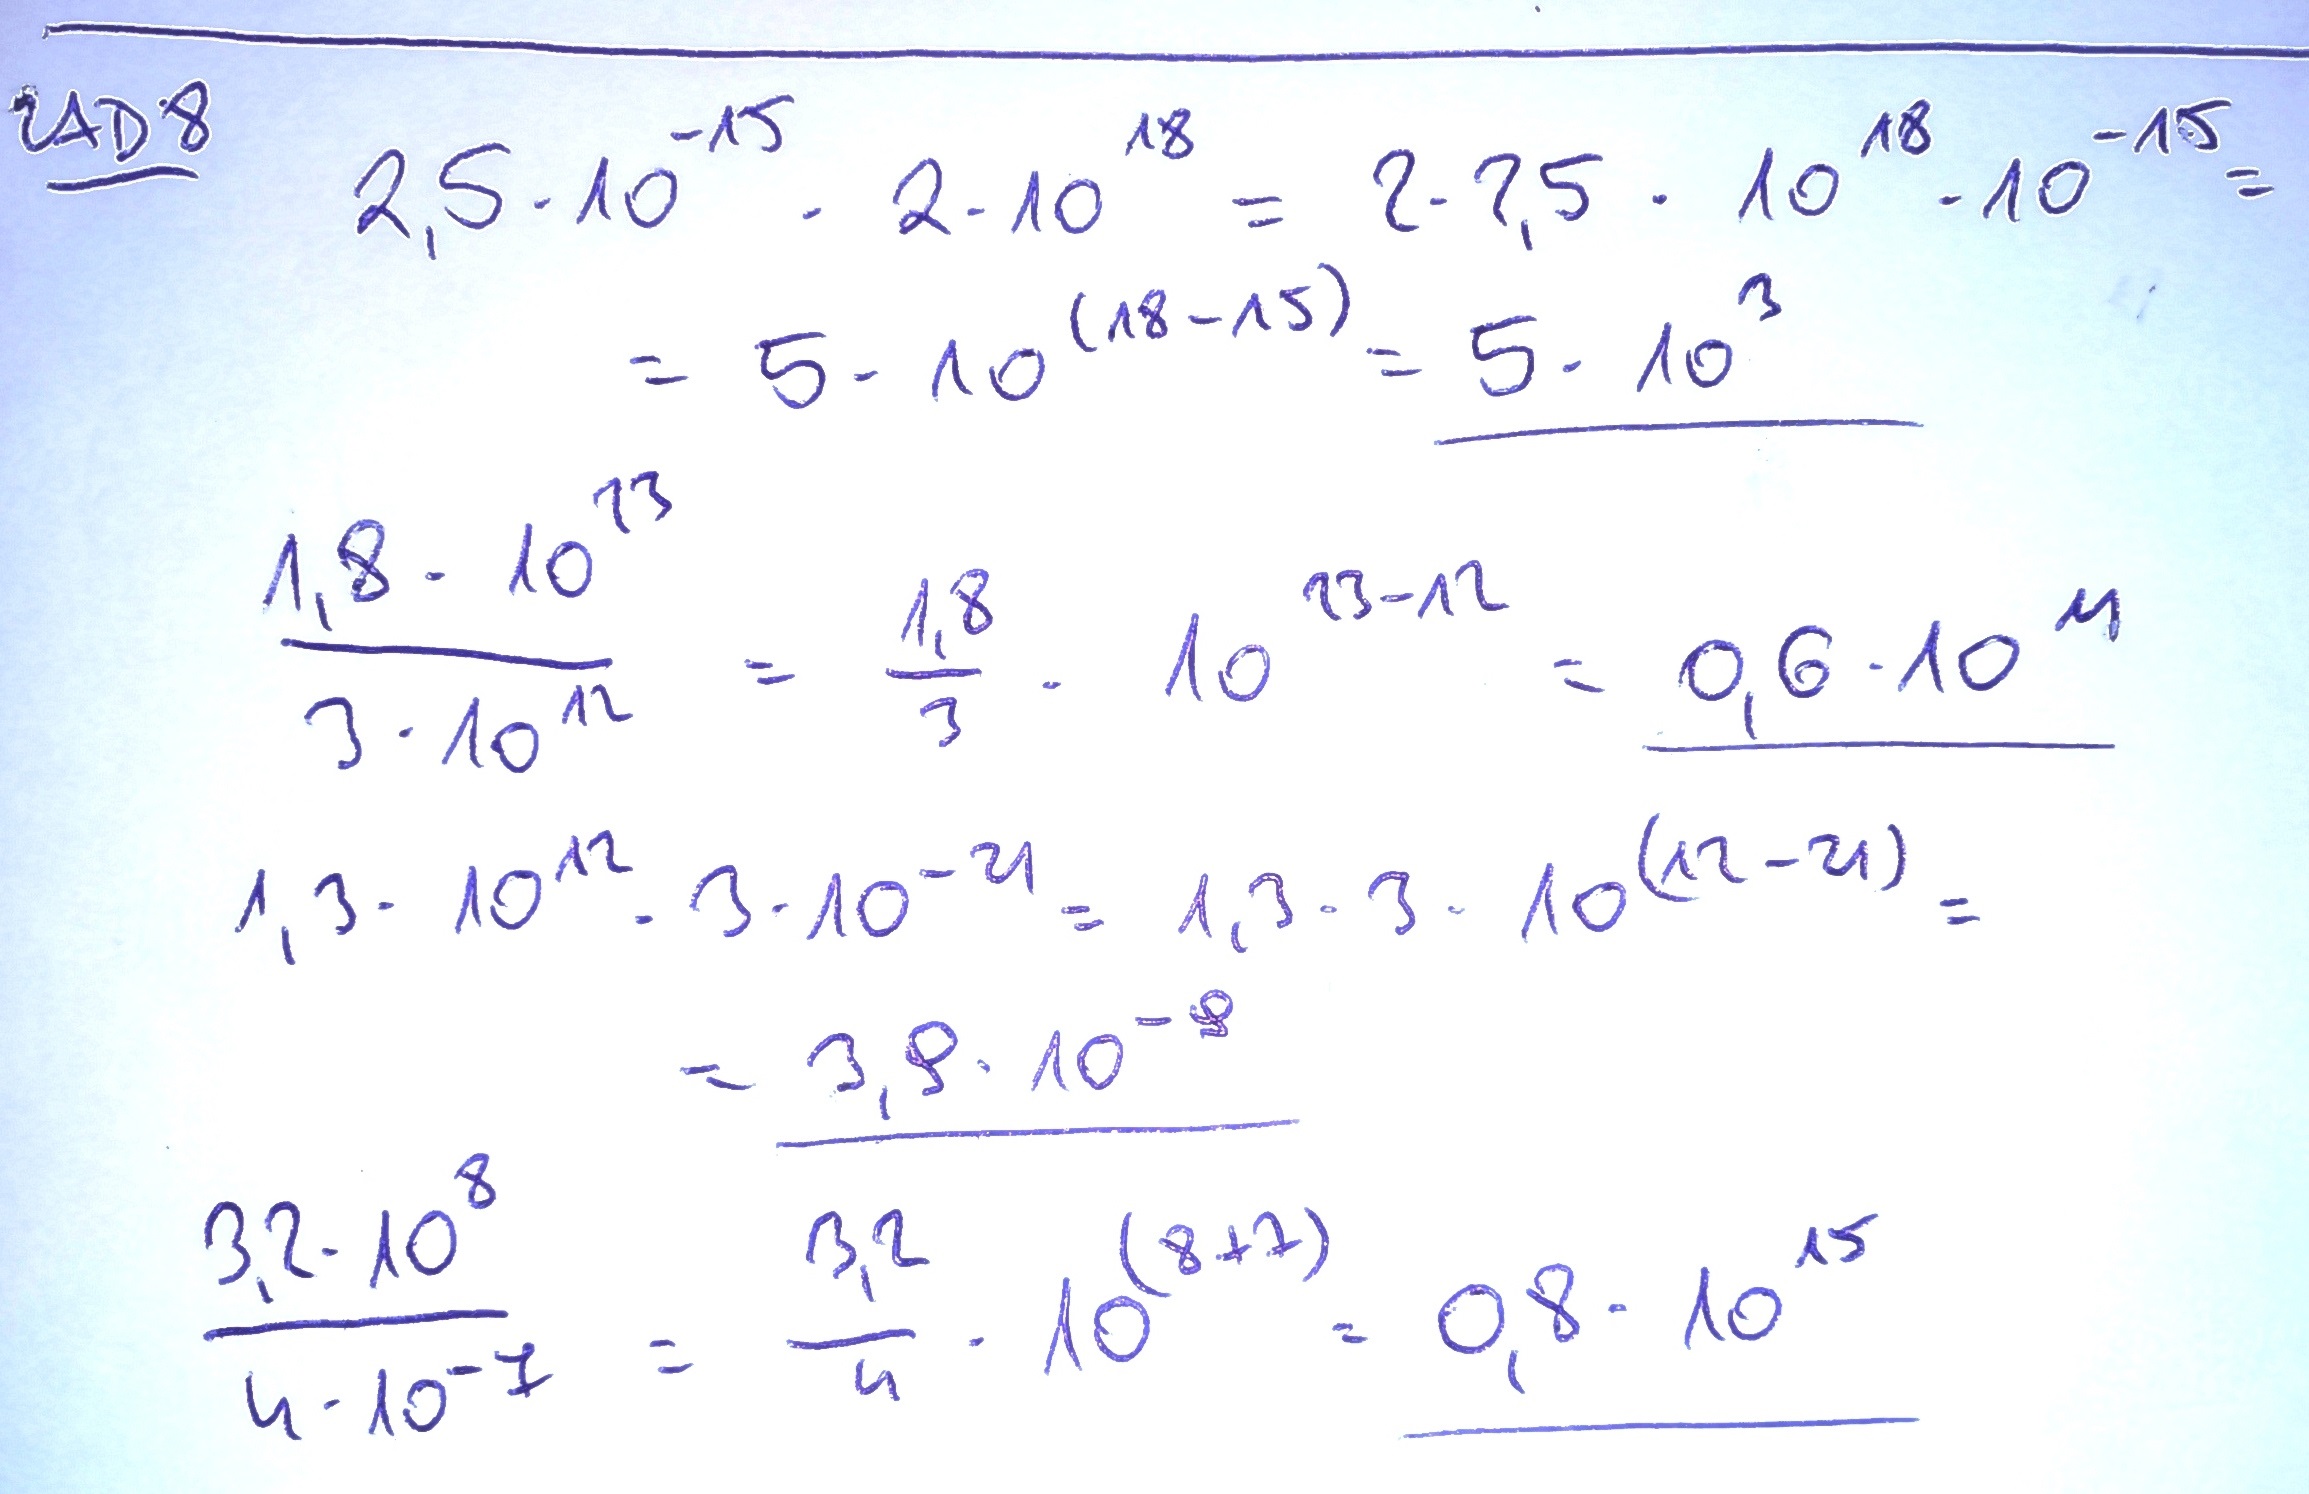 ZAD 8 2,5 · 10⁻¹⁵ · 2 · 10¹⁸ = 2 · 2,5 · 10¹⁸ · 10⁻¹⁵ =
= 5 · 10⁽¹⁸⁻¹⁵⁾ = 5 · 10³
1,8 · 10²³ / 3 · 10¹² = 1,8 / 3 · 10²³⁻¹² = 0,6 · 10¹¹
1,3 · 10¹² · 3 · 10⁻²¹ = 1,3 · 3 · 10⁽¹²⁻²¹⁾ =
= 3,9 · 10⁻⁹
3,2 · 10⁸ / 4 · 10⁻⁷ = 3,2 / 4 · 10⁽⁸⁺⁷⁾ = 0,8 · 10¹⁵